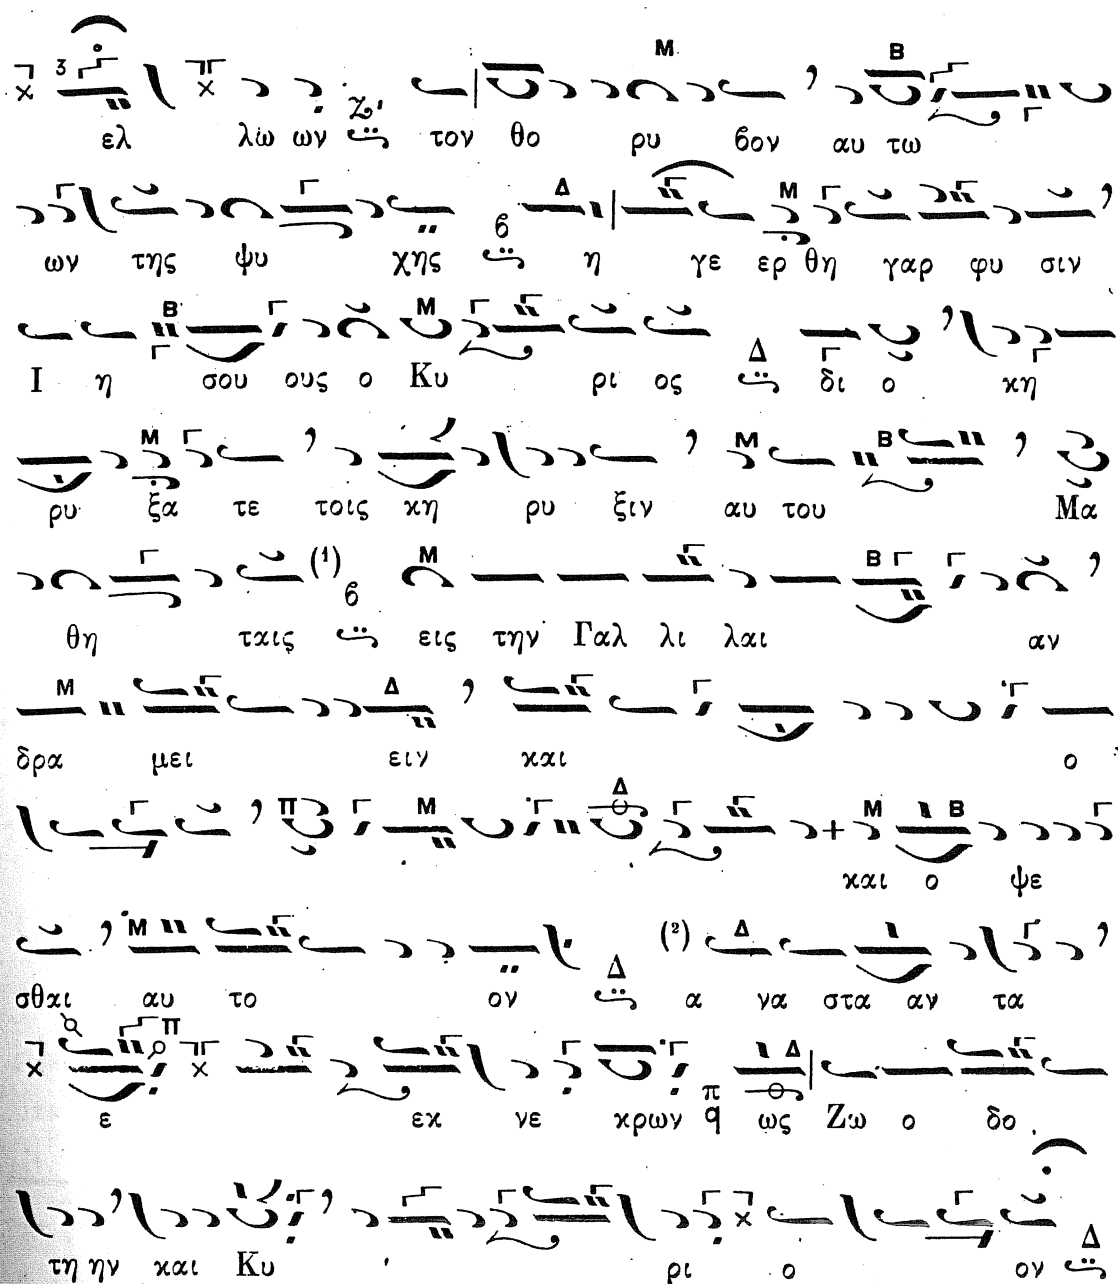 ελ λω ων τον θο ρυ βον αυ τω
ων της ψυ χης η γε ερ θη γαρ φυ σιν
Ι η σου ους ο Κυ ρι ος δι ο κη
ρυ ξα τε τοις κη ρυ ξιν αυ του Μα
θη ταις (1) εις την Γαλ λι λαι αν
δρα μει ειν και ο
και ο ψε
σθαι αυ το ον (2) α να στα αν τα
ε εκ νε κρων ως Ζω ο δο
τη ην και Κυ ρι ο ον